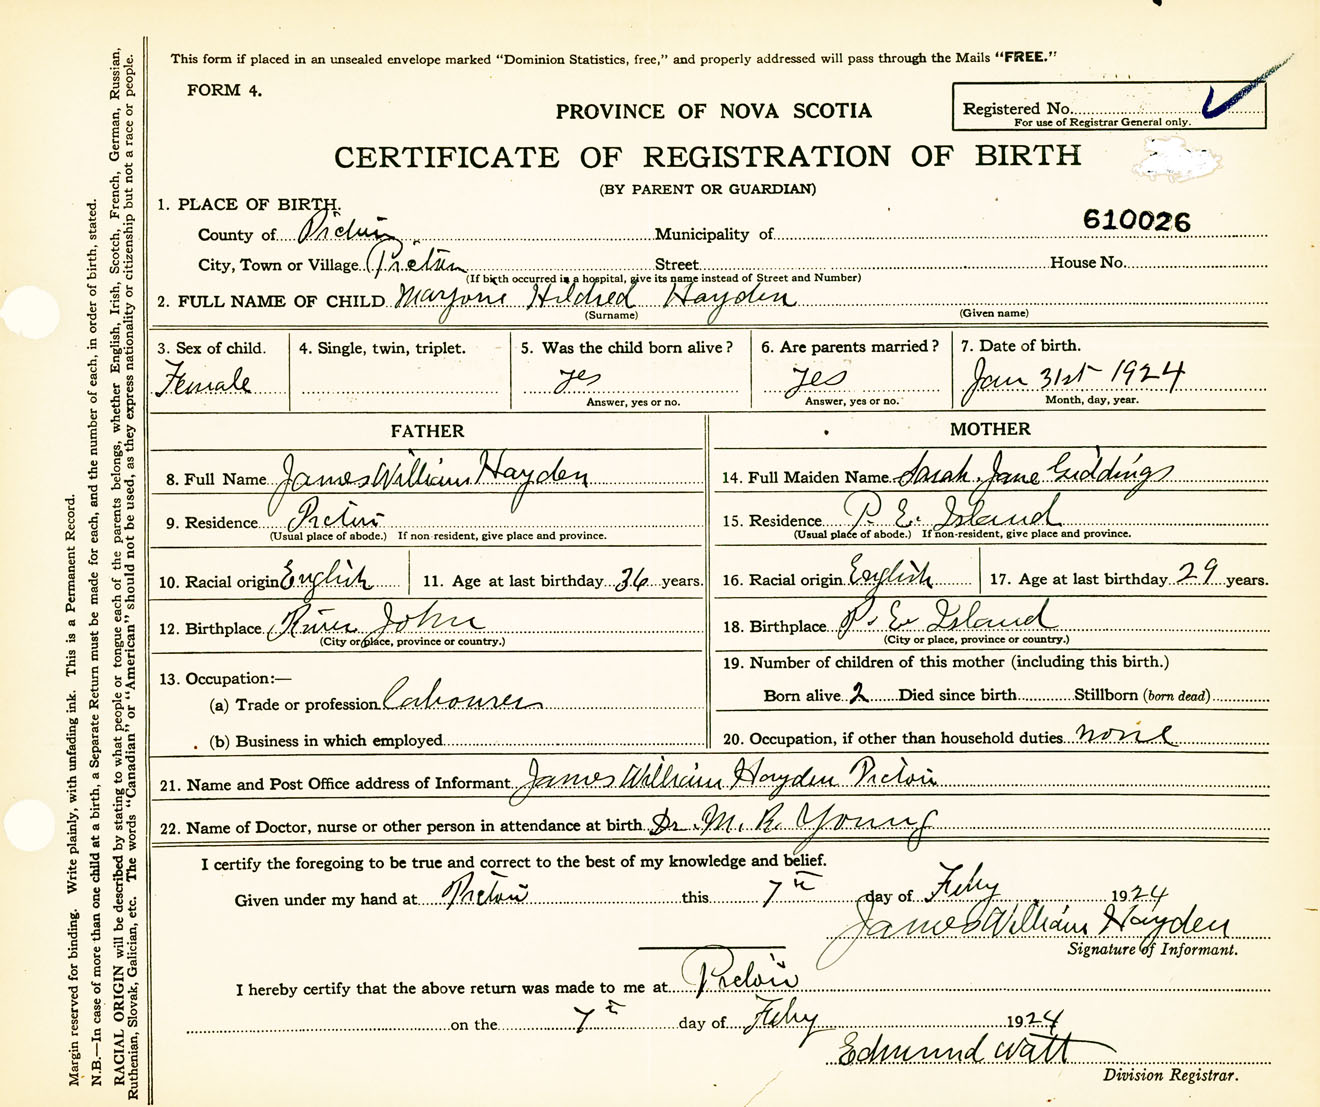 This form if placed in an unsealed envelope marked "Dominion Statistics, free," and properly addressed will pass through the Mails "FREE."
FORM 4.
PROVINCE OF NOVA SCOTIA
Registered No.
For use of Registrar General only.
CERTIFICATE OF REGISTRATION OF BIRTH
(BY PARENT OR GUARDIAN)
1. PLACE OF BIRTH.
610026
County of Pictou Municipality of
City, Town or Village Pictou Street House No.
(If birth occurred in a hospital, give its name instead of Street and Number)
2. FULL NAME OF CHILD Marjorie Hildred Hayden
(Surname) (Given name)
3. Sex of child. 4. Single, twin, triplet. 5. Was the child born alive? 6. Are parents married? 7. Date of birth.
Female yes yes Jan 31st 1924
Answer, yes or no. Answer, yes or no. Month, day, year.
FATHER MOTHER
8. Full Name James William Hayden 14. Full Maiden Name Sarah Jane Giddings
9. Residence Pictou 15. Residence P. E. Island
(Usual place of abode.) If non-resident, give place and province. (Usual place of abode.) If non-resident, give place and province.
10. Racial origin English 11. Age at last birthday 36 years. 16. Racial origin English 17. Age at last birthday 29 years.
12. Birthplace River John 18. Birthplace P. E. Island
(City or place, province or country.) (City or place, province or country.)
13. Occupation:—
(a) Trade or profession Labourer
(b) Business in which employed
19. Number of children of this mother (including this birth.)
Born alive 2 Died since birth Stillborn (born dead)
20. Occupation, if other than household duties none
21. Name and Post Office address of Informant James William Hayden Pictou
22. Name of Doctor, nurse or other person in attendance at birth Dr. M. R. Young
I certify the foregoing to be true and correct to the best of my knowledge and belief.
Given under my hand at Pictou this 7th day of Feby 1924
James William Hayden
Signature of Informant.
I hereby certify that the above return was made to me at Pictou
on the 7th day of Feby 1924
Edmund Watt
Division Registrar.
Margin reserved for binding. Write plainly, with unfading ink. This is a Permanent Record.
N.B.—In case of more than one child at a birth, a Separate Return must be made for each, and the number of each, in order of birth, stated.
RACIAL ORIGIN will be described by stating to what people or tongue each of the parents belongs, whether English, Irish, Scotch, French, German, Russian,
Ruthenian, Slovak, Galician, etc. The words "Canadian" or "American" should not be used, as they express nationality or citizenship but not a race or people.